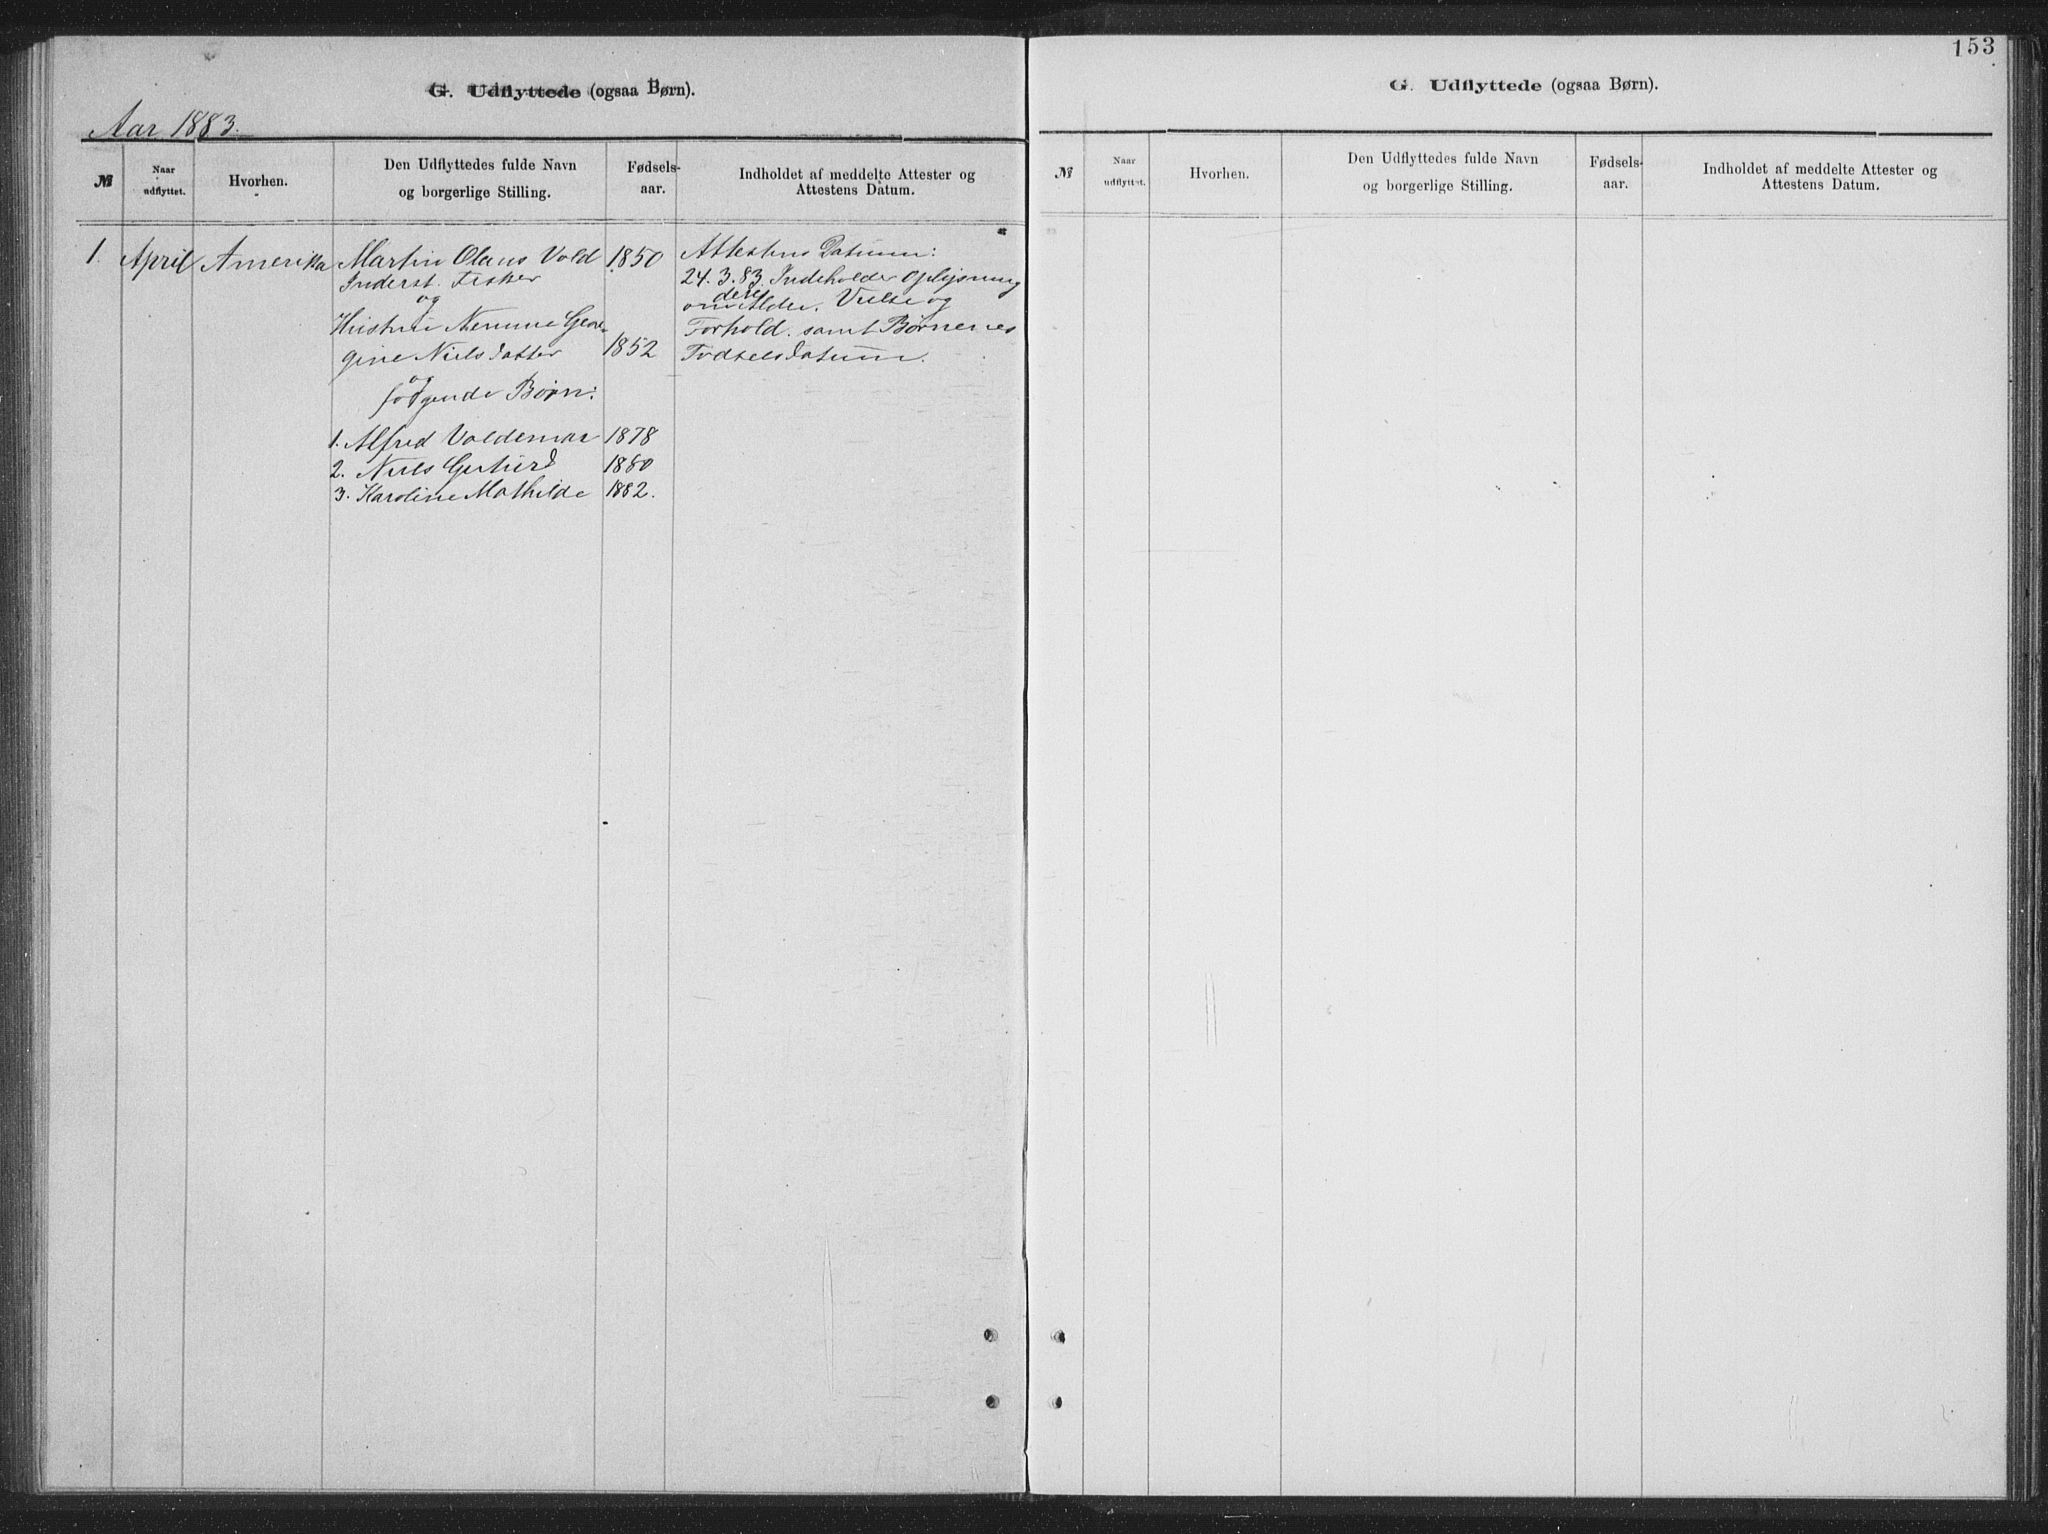 G. Udflyttede (ogsaa Børn).
Aar 1883.
№
Naar udflyttet.
Hvorhen.
Den Udflyttedes fulde Navn
og borgerlige Stilling.
Fødsels-
aar.
Indholdet af meddelte Attester og
Attestens Datum.
1. April Amerika Martin Olaus Vold 1850 Attestens Datum:
Inderst. Fisker 24.3.83. Indeholder Oplysning
og om deres Alder. Vielse og
Hustru Georgine Nielsdatter 1852 Forhold. samt Børnenes
Fødselsdatum.
og
følgende Børn:
1. Alfred Valdemar 1878
2. Niels 1880
3. Karoline Mathilde 1882.
153
G. Udflyttede (ogsaa Børn).
№
Naar
udflyttet.
Hvorhen.
Den Udflyttedes fulde Navn
og borgerlige Stilling.
Fødsels-
aar.
Indholdet af meddelte Attester og
Attestens Datum.